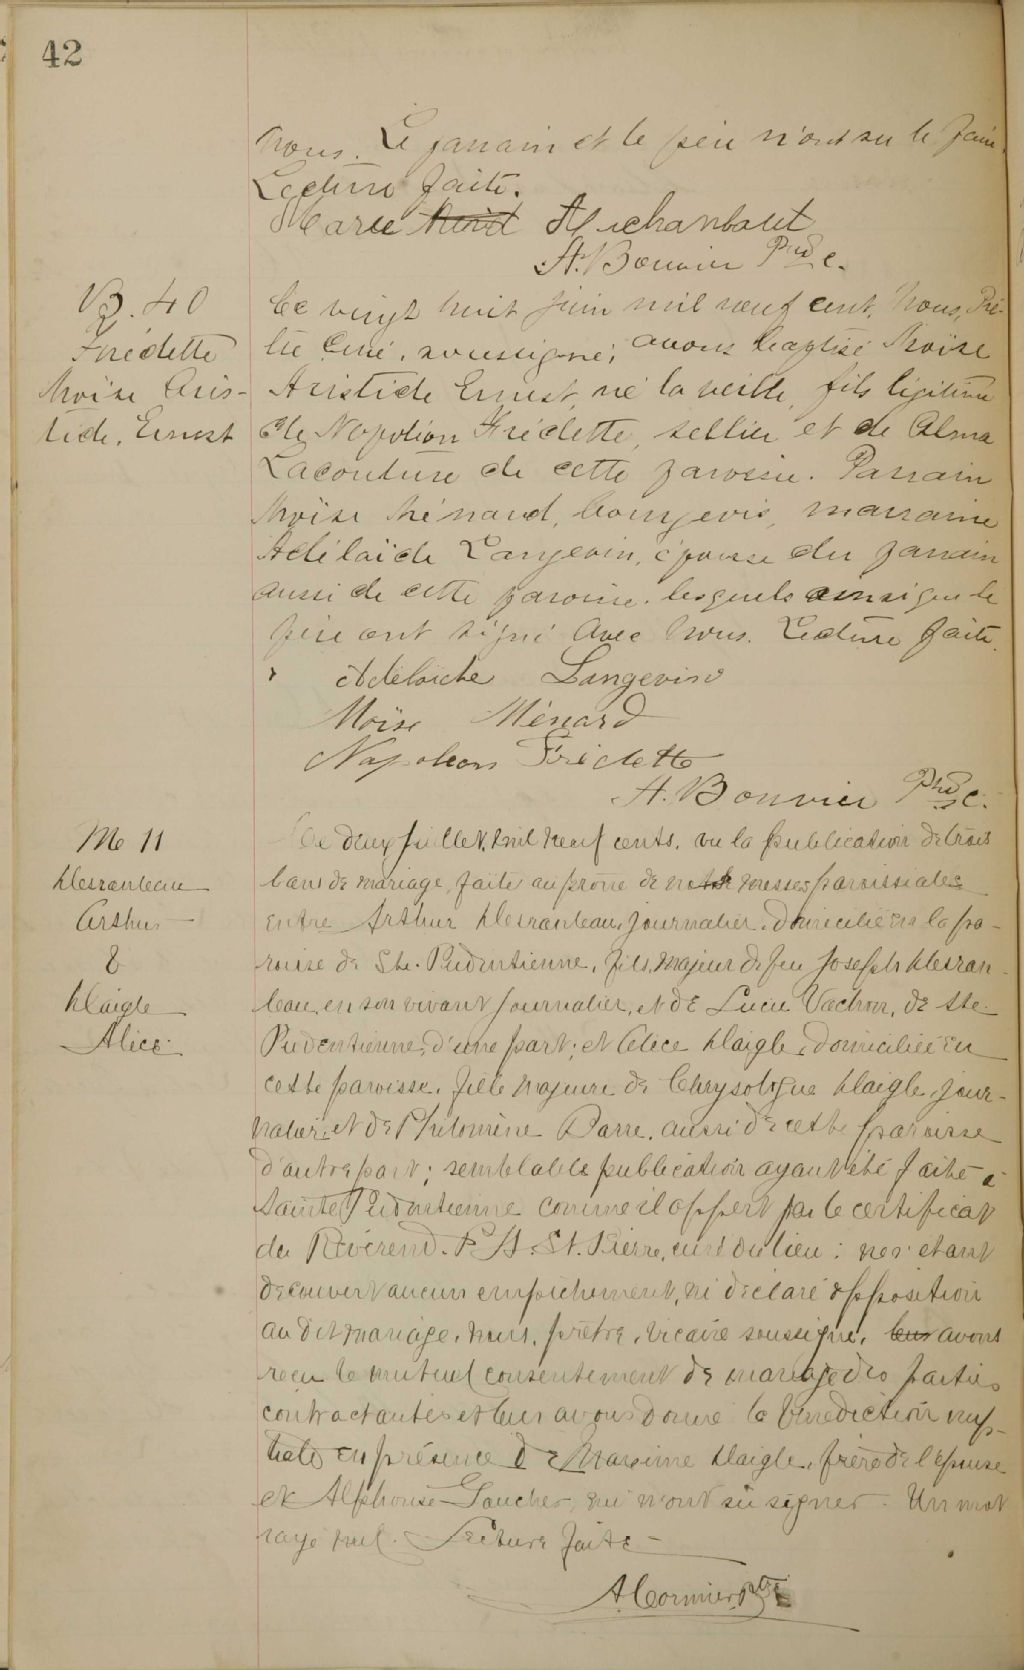 42
nous. Le parrain et le père n'ont su le faire.
Lecture faite.
Marie Archambault
A. Bouvier Ptre c.
B. 40
Frédette
Moïse Aris-
tide, Ernest
Ce vingt huit juin mil neuf cent, Nous, Prê-
tre Curé, soussigné, avons baptisé Moïse
Aristide Ernest, né la veille, fils légitime
de Napoléon Frédette, sellier et de Alma
Lacouture de cette paroisse. Parrain
Moïse Ménard, bourgeois, marraine
Adélaïde Langevin, épouse du parrain
aussi de cette paroisse. lesquels ainsi que le
père ont signé avec Nous. Lecture faite.
Adélaïde Langevin
Moïse Ménard
Napoléon Frédette
A. Bouvier Ptre c.
M 11
Desranleau
Arthur
&
Daigle
Alice
Ce deux juillet, mil neuf cents, vu la publication de trois
bans de mariage, faite au prône de nos messes paroissiales
entre Arthur Desranleau, journalier, domicilié en la pa-
roisse de Ste. Pudentienne, fils, majeur de feu Joseph Desran-
leau, en son vivant journalier, et de Lucie Vachon, de Ste
Pudentienne, d'une part; et Alice Daigle, domiciliée en
cette paroisse, fille majeure de Chrysologue Daigle, jour-
nalier, et de Philomène Barre, aussi de cette paroisse
d'autre part; semblable publication ayant été faite à
Sainte Pudentienne comme il appert par le certificat
du Révérend. P. H. St. Pierre, curé du lieu: ne s'étant
découvert aucun empêchement, ni déclaré opposition
au dit mariage, nous, prêtre, vicaire soussigné, leur avons
reçu le mutuel consentement de mariage des parties
contractantes et leur avons donné la bénédiction nup-
tiale en présence de Maxime Daigle, frère de l'épouse
et Alphonse Gaucher, qui n'ont su signer. Un mot
rayé nul. Lecture faite
A. Cormier, Ptre